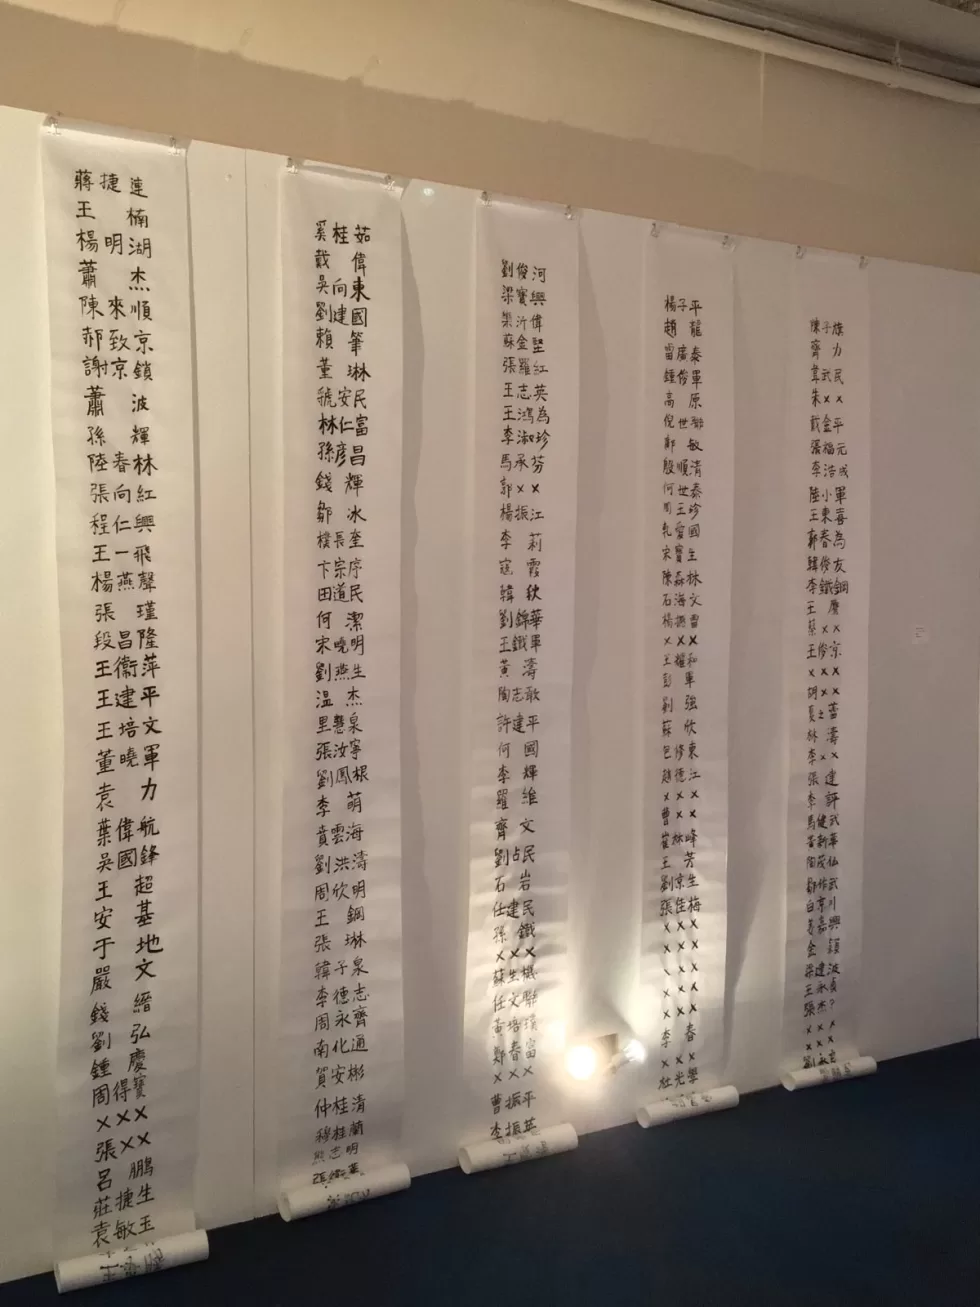 蔣捷連
王楠
楊明湖
蕭杰
陳來順
郝致京
謝京鎖
蕭波
孫輝
陸春林
張向紅
程仁興
王一飛
楊燕聲
張瑾
段昌隆
王衛萍
王建平
王培文
董曉軍
袁力
葉偉航
吳國鋒
王超
安基
于地
嚴文
錢縉
劉弘
鍾慶
周得寶
×××
張××
呂鵬
莊捷生
袁敏玉
奚桂茹
戴偉
吳向東
劉建國
賴筆
董琳
虢安民
林仁富
孫彥昌
錢輝
鄒冰
樸長奎
卞宗序
田道民
何潔
宋曉明
劉燕生
溫杰
里慧泉
張汝寧
劉鳳根
李萌
賁雲海
劉洪濤
周欣明
王鋼
張琳
韓子泉
李德志
周永齊
南化通
賀安彬
仲桂清
穆桂蘭
熊志明
劉俊河
梁寶興
樂沂偉
蘇金堅
張羅紅
王志英
王鴻為
李淑珍
馬承芬
郭××
楊振江
李莉
寇霞
韓秋
劉錦華
王鐵軍
黃濤
陶志敢
許建平
何國
李輝
羅維
齊文
劉占民
石岩
任建民
孫鐵
×××
蘇生機
任文聯
黃培璞
鄭春富
×××
曹振平
李振英
楊子平
趙龍
雷廣泰
鍾俊軍
高原
倪世聯
鄭敏
殷順清
何世泰
周玉珍
軋愛國
宋寶生
陳森林
石海文
楊振雷
×××
王權和
彭軍
劉強
蘇欣
包修東
趙德江
×××
曹××
崔林峰
王芳
劉京生
張佳梅
×××
×××
×××
×××
×××
李春
×××
杜光學
陳子旗
齊力
葺武民
朱××
戴金平
張福元
李浩成
陸小軍
王東喜
郭春為
韓俊友
李鐵鋼
王慶
蔡××
王俊京
×××
胡××
夏之蕾
林濤
李××
張建
李評
馬健武
黃新華
陶茂仙
鄒作武
白京川
姜嘉興
金穎
梁建波
王永貞
張杰?
×××
×××